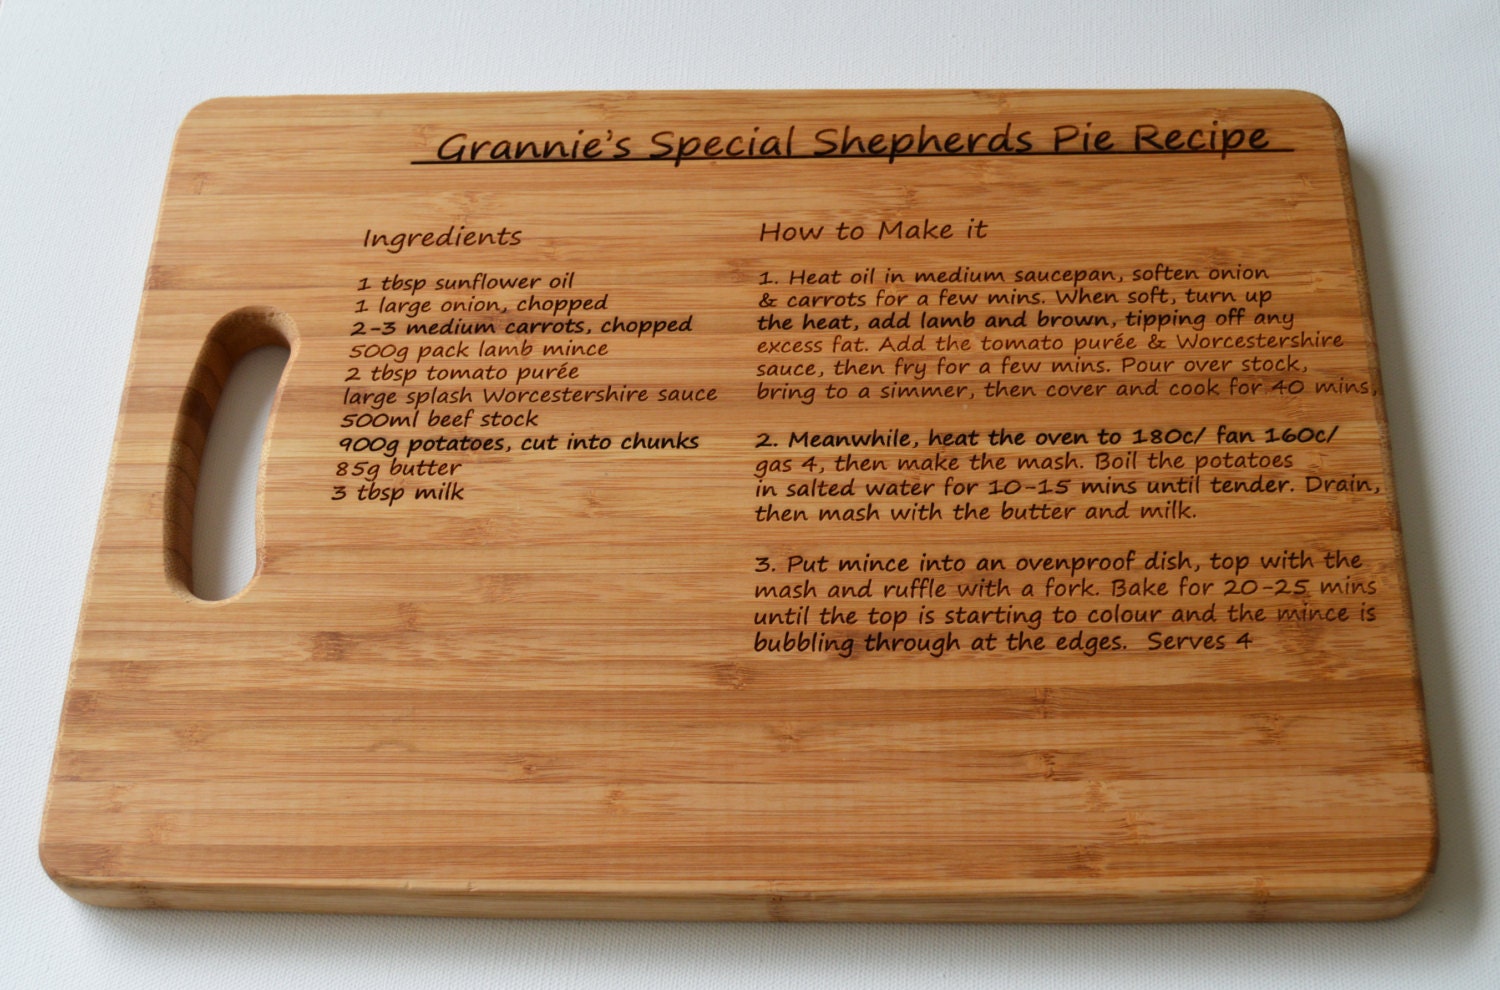 Grannie's Special Shepherds Pie Recipe
Ingredients
1 tbsp sunflower oil
1 large onion, chopped
2-3 medium carrots, chopped
500g pack lamb mince
2 tbsp tomato purée
large splash Worcestershire sauce
500ml beef stock
900g potatoes, cut into chunks
85g butter
3 tbsp milk
How to Make it
1. Heat oil in medium saucepan, soften onion
& carrots for a few mins. When soft, turn up
the heat, add lamb and brown, tipping off any
excess fat. Add the tomato purée & Worcestershire
sauce, then fry for a few mins. Pour over stock,
bring to a simmer, then cover and cook for 40 mins,
2. Meanwhile, heat the oven to 180c/ fan 160c/
gas 4, then make the mash. Boil the potatoes
in salted water for 10-15 mins until tender. Drain,
then mash with the butter and milk.
3. Put mince into an ovenproof dish, top with the
mash and ruffle with a fork. Bake for 20-25 mins
until the top is starting to colour and the mince is
bubbling through at the edges. Serves 4